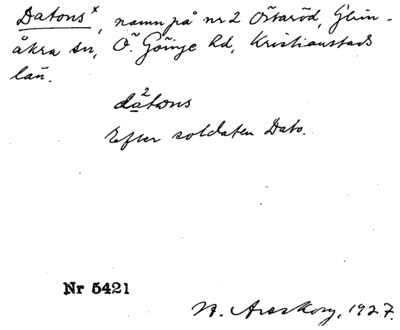 Datons x, namn på nr 2 Östaröd, Glim-
åkra sn, Ö. Göinge hd, Kristianstads
län.
2
datons
Efter soldaten Dato.
Nr 5421
1927.